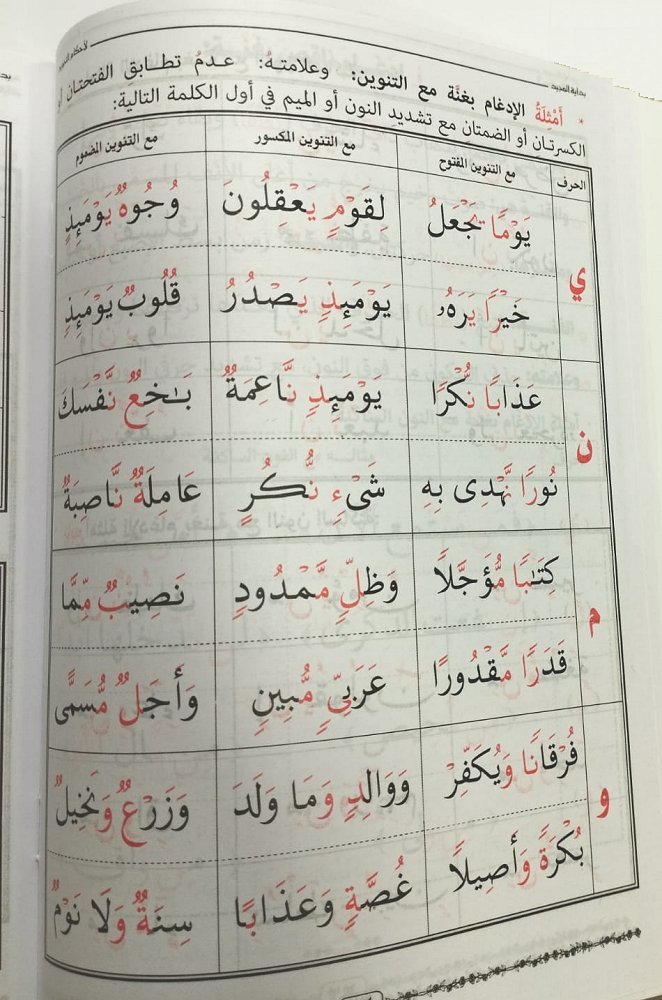 بداية المجيد
* أَمْثِلَةُ الإدغام بغنَّة مع التنوين: وعلامتهُ: عدمُ تطابق الفتحتـان
الكسرتـان أو الضمتان مع تشديدِ النون أو الميم في أول الكلمة التالية:
الحرف مع التنوين المفتوح مع التنوين المكسور مع التنوين المضموم
ي يَوْمًا يَجْعَلُ لِقَوْمٍ يَعْقِلُونَ وُجُوهٌ يَوْمَئِذٍ
خَيْرًا يَرَهُۥ يَوْمَئِذٍ يَصْدُرُ قُلُوبٌ يَوْمَئِذٍ
ن عَذَابًا نُّكْرًا يَوْمَئِذٍ نَّاعِمَةٌ بَـٰخِعٌ نَّفْسَكَ
نُورًا نَّهْدِى بِهِ شَىْءٍ نُّكُرٍ عَامِلَةٌ نَّاصِبَةٌ
م كِتَـٰبًا مُّؤَجَّلًا وَظِلٍّ مَّمْدُودٍ نَصِيبٌ مِّمَّا
قَدَرًا مَّقْدُورًا عَرَبِىٍّ مُّبِينٍ وَأَجَلٌ مُّسَمًّى
و فُرْقَانًا وَيُكَفِّرْ وَوَالِدٍ وَمَا وَلَدَ وَزَرْعٌ وَنَخِيلٌ
بُكْرَةً وَأَصِيلًا غُصَّةٍ وَعَذَابًا سِنَةٌ وَلَا نَوْمٌ